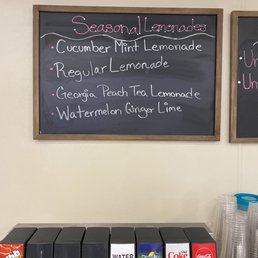 Seasonal Lemonades
• Cucumber Mint Lemonade
• Regular Lemonade
• Georgia Peach Tea Lemonade
• Watermelon Ginger Lime
Un
Uns
WATER
Coke